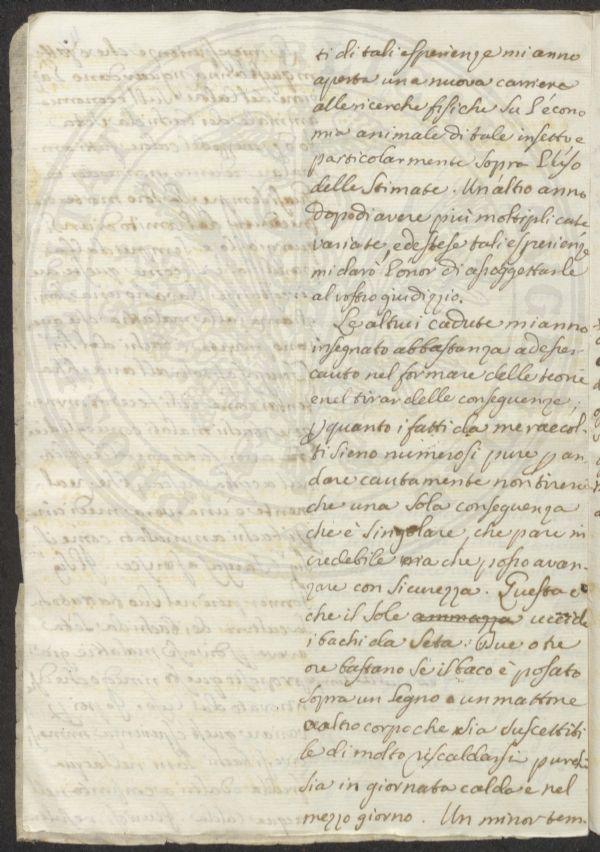 ti di tali esperienze mi anno
aperta una nuova carriera
alle ricerche fisiche su l'econo
mia animale di tale insetto e
particolarmente sopra l'uso
delle Stimate. Un'altro anno
dopo di avere più moltiplicate
variate, ed estese tali esperienze
mi darò l'onor di assoggettarle
al vostro giudizzio.
Le altrui cadute mi anno
insegnato abbastanza ad esser
cauto nel formare delle teorie
e nel tirar delle conseguenze;
quanto i fatti da me racol-
ti sieno numerosi pure an
dare cautamente non tirerò
che una sola conseguenza
che è singolare, che pare in
credibile ma che posso avan-
zare con sicurezza. Questa è
che il sole ammazza uccide
i bachi da Seta. Due o tre
ore bastano se il baco è posato
sopra un legno o un mattone
o altro corpo che sia suscettibi
le di molto riscaldarsi purchè
sia in giornata calda e nel
mezzo giorno. Un minor tem-